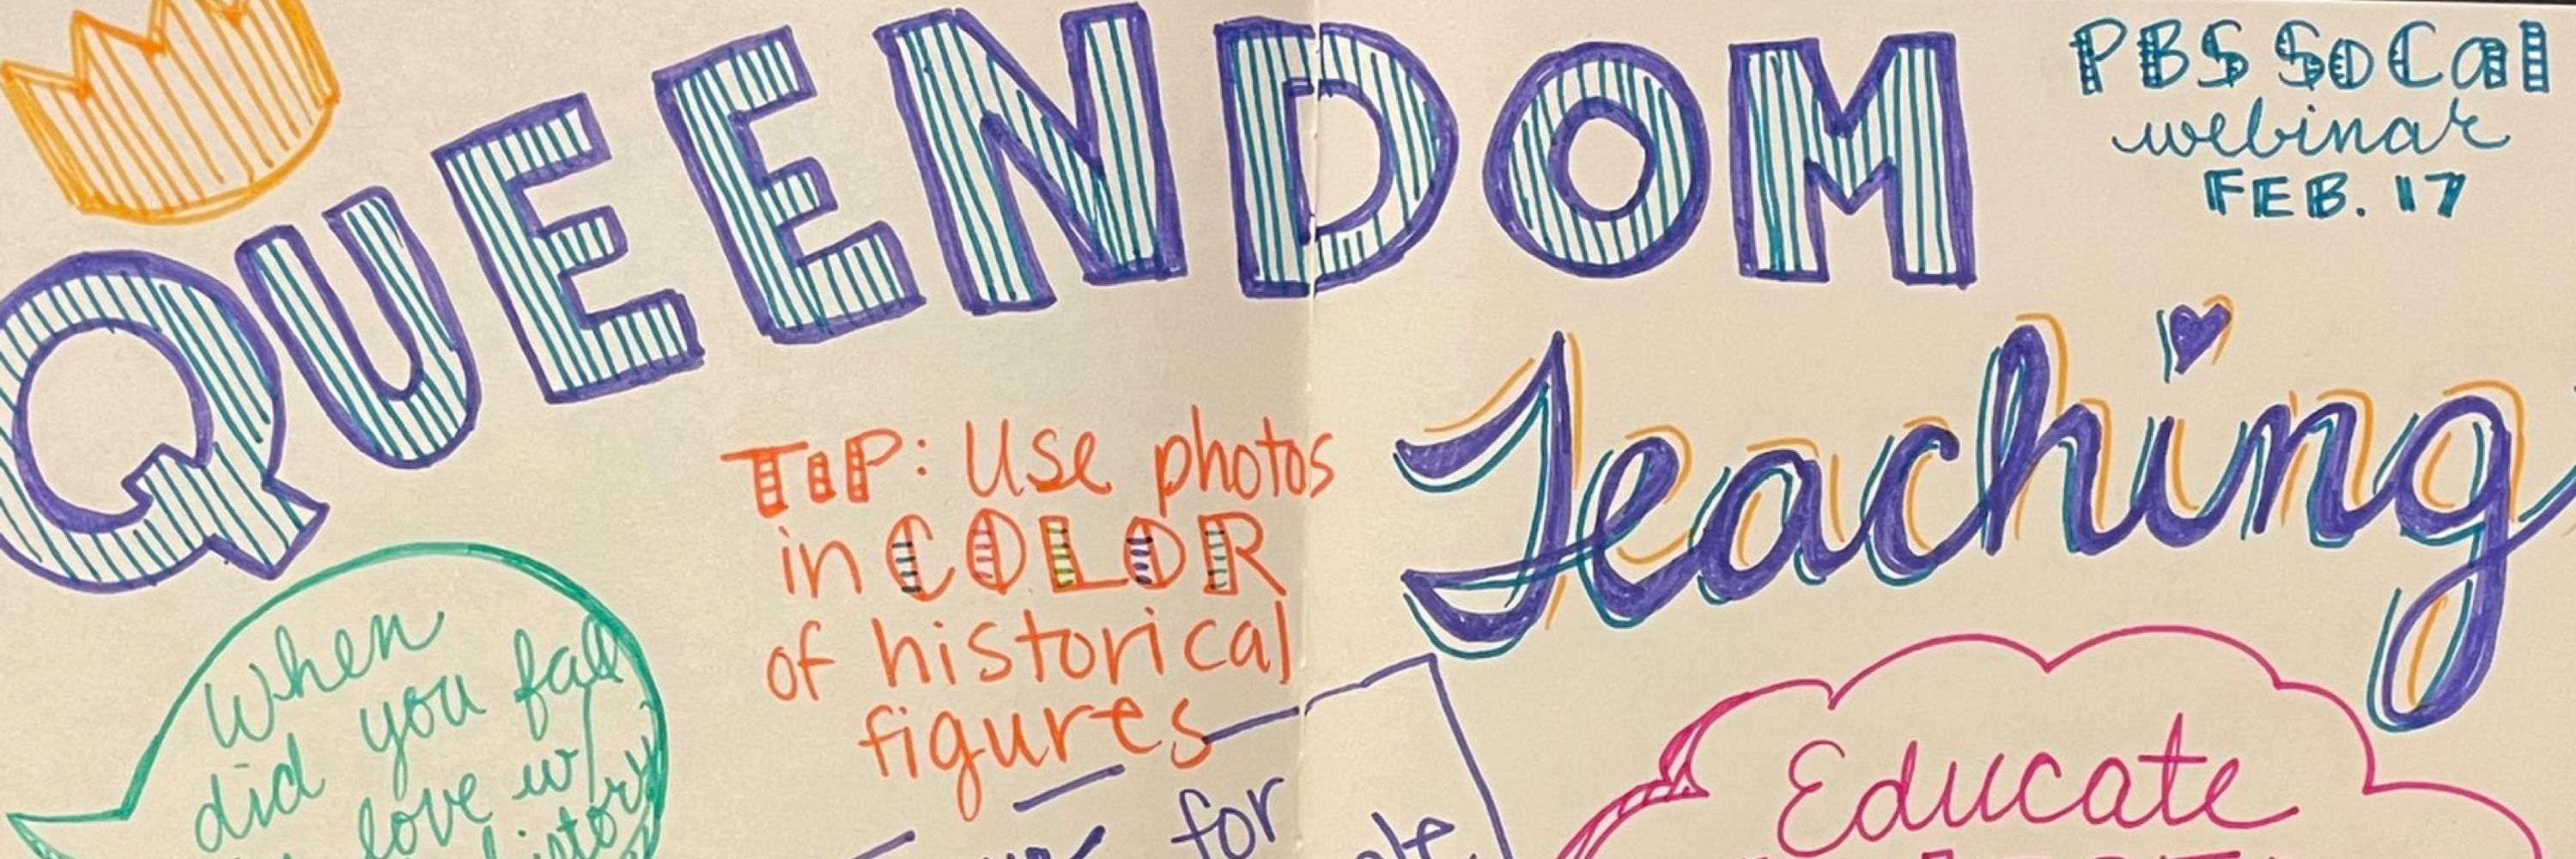 QUEENDOM
PBS SoCal
webinar
FEB. 17
Teaching
TIP: Use photos
in COLOR
of historical
figures
When
did you fall
love w/
history
for
Educate